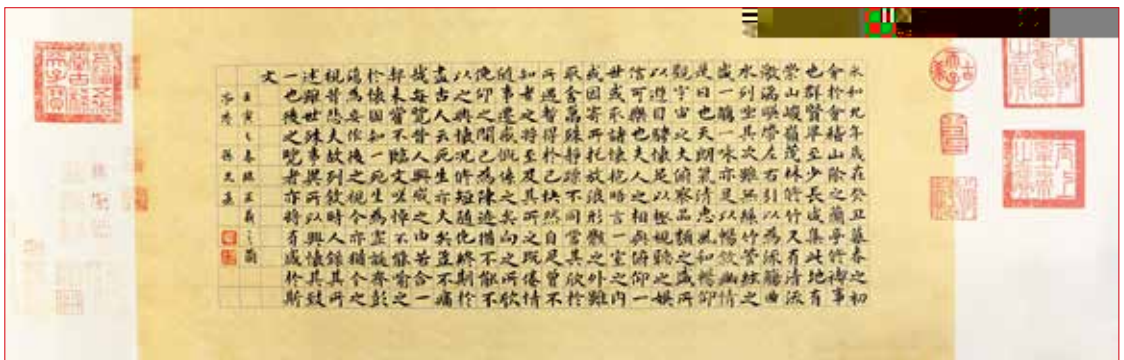 永和九年歲在癸丑暮春之初
會於會稽山陰之蘭亭脩禊事
也群賢畢至少長咸集此地有
崇山峻嶺茂林脩竹又有清流
激湍映帶左右引以為流觴曲
水列坐其次雖無絲竹管絃之
盛一觴一詠亦足以暢敘幽情
是日也天朗氣清惠風和暢仰
觀宇宙之大俯察品類之盛所
以遊目騁懷足以極視聽之娛
信可樂也夫人之相與俯仰一
世或取諸懷抱晤言一室之內
或因寄所託放浪形骸之外雖
取舍萬殊靜躁不同當其欣於
所遇暫得於己快然自足曾不
知老之將至及其所之既倦情
隨事遷感慨係之矣向之所欣
俛仰之間已為陳迹猶不能不
以之興懷況脩短隨化終期於
盡古人云死生亦大矣豈不痛
哉每覽昔人興感之由若合一
契未嘗不臨文嗟悼不能喻之
於懷固知一死生為虛誕齊彭
殤為妄作後之視今亦猶今之
視昔悲夫故列敘時人錄其所
述雖世殊事異所以興懷其致
一也後之覽者亦將有感於斯
文
壬寅之春臨王羲之蘭
亭序 孫文